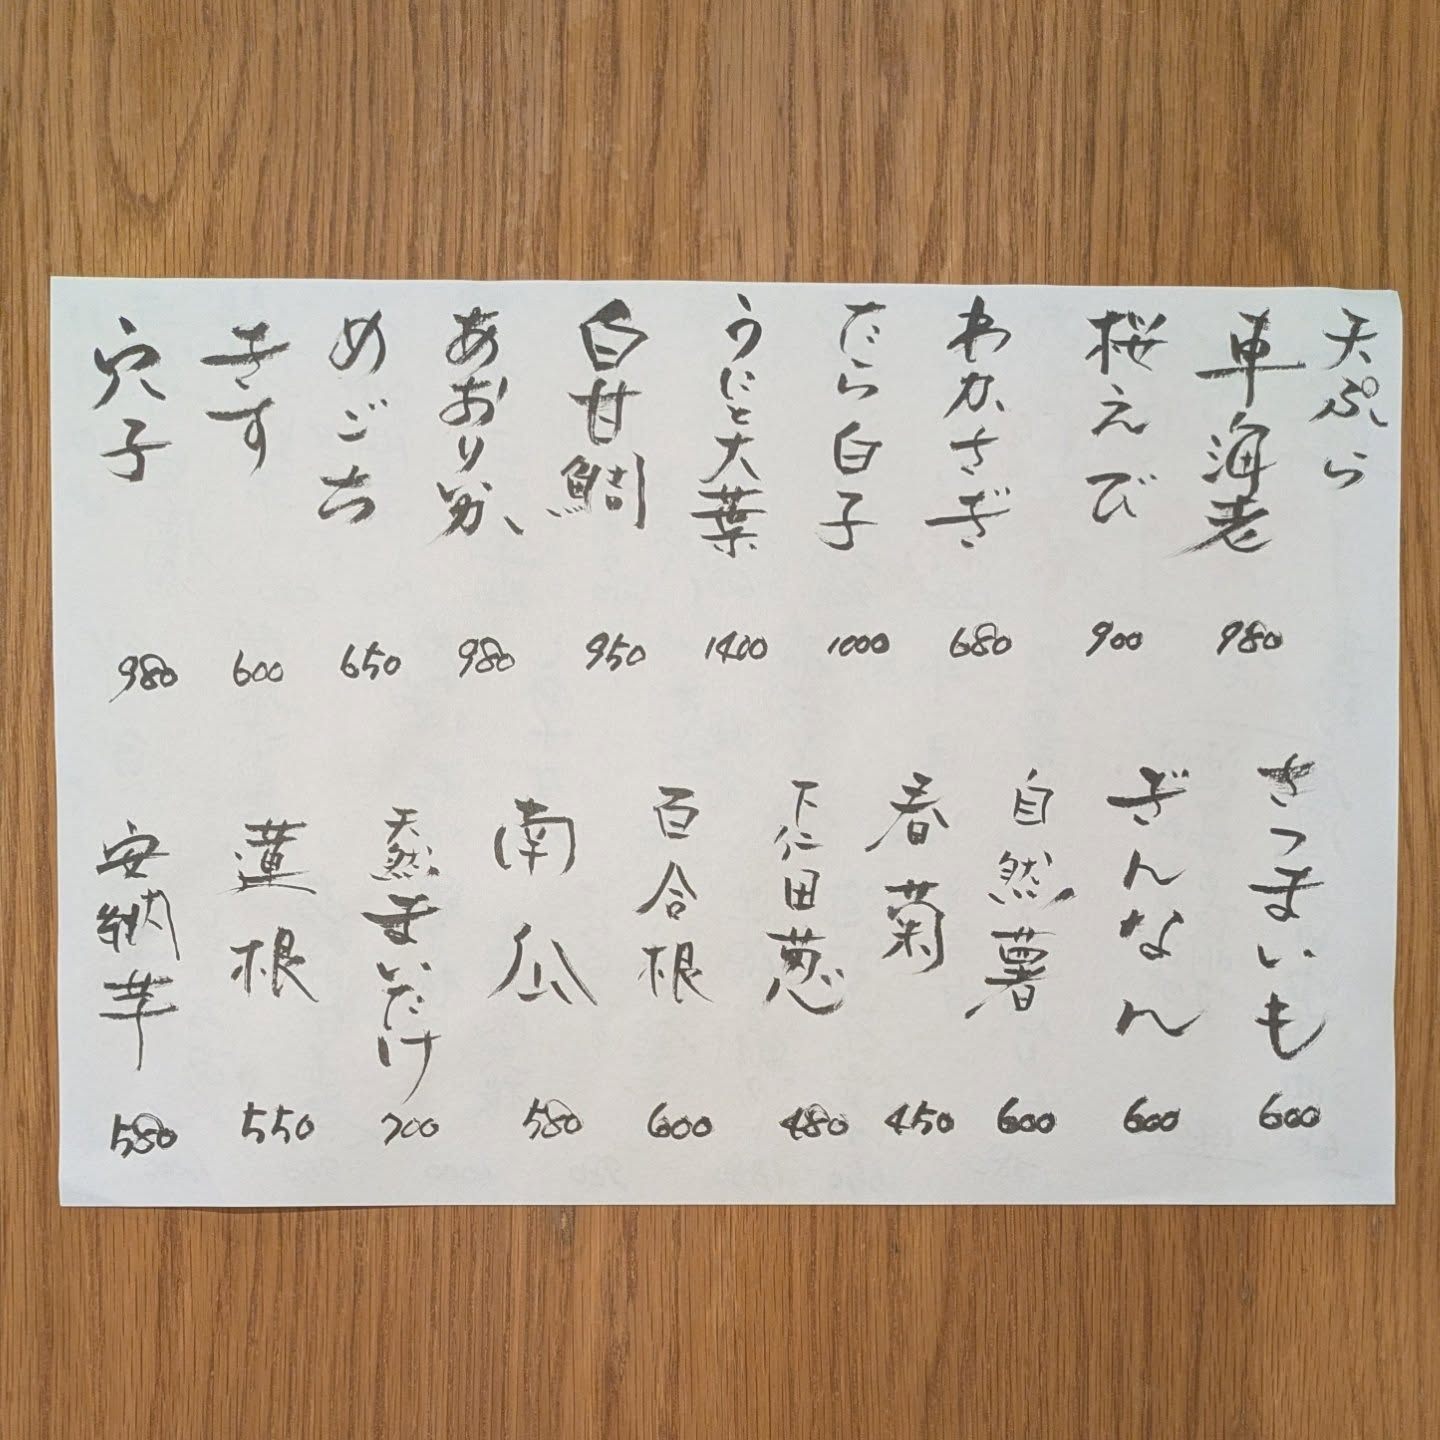 天ぷら
車海老 980
桜えび 900
わかさぎ 680
たら白子 1000
うにと大葉 1400
白甘鯛 950
あおりいか 980
めごち 650
きす 600
穴子 980
さつまいも 600
ぎんなん 600
自然薯 600
春菊 450
下仁田葱 480
百合根 600
南瓜 580
天然まいたけ 700
蓮根 550
安納芋 580